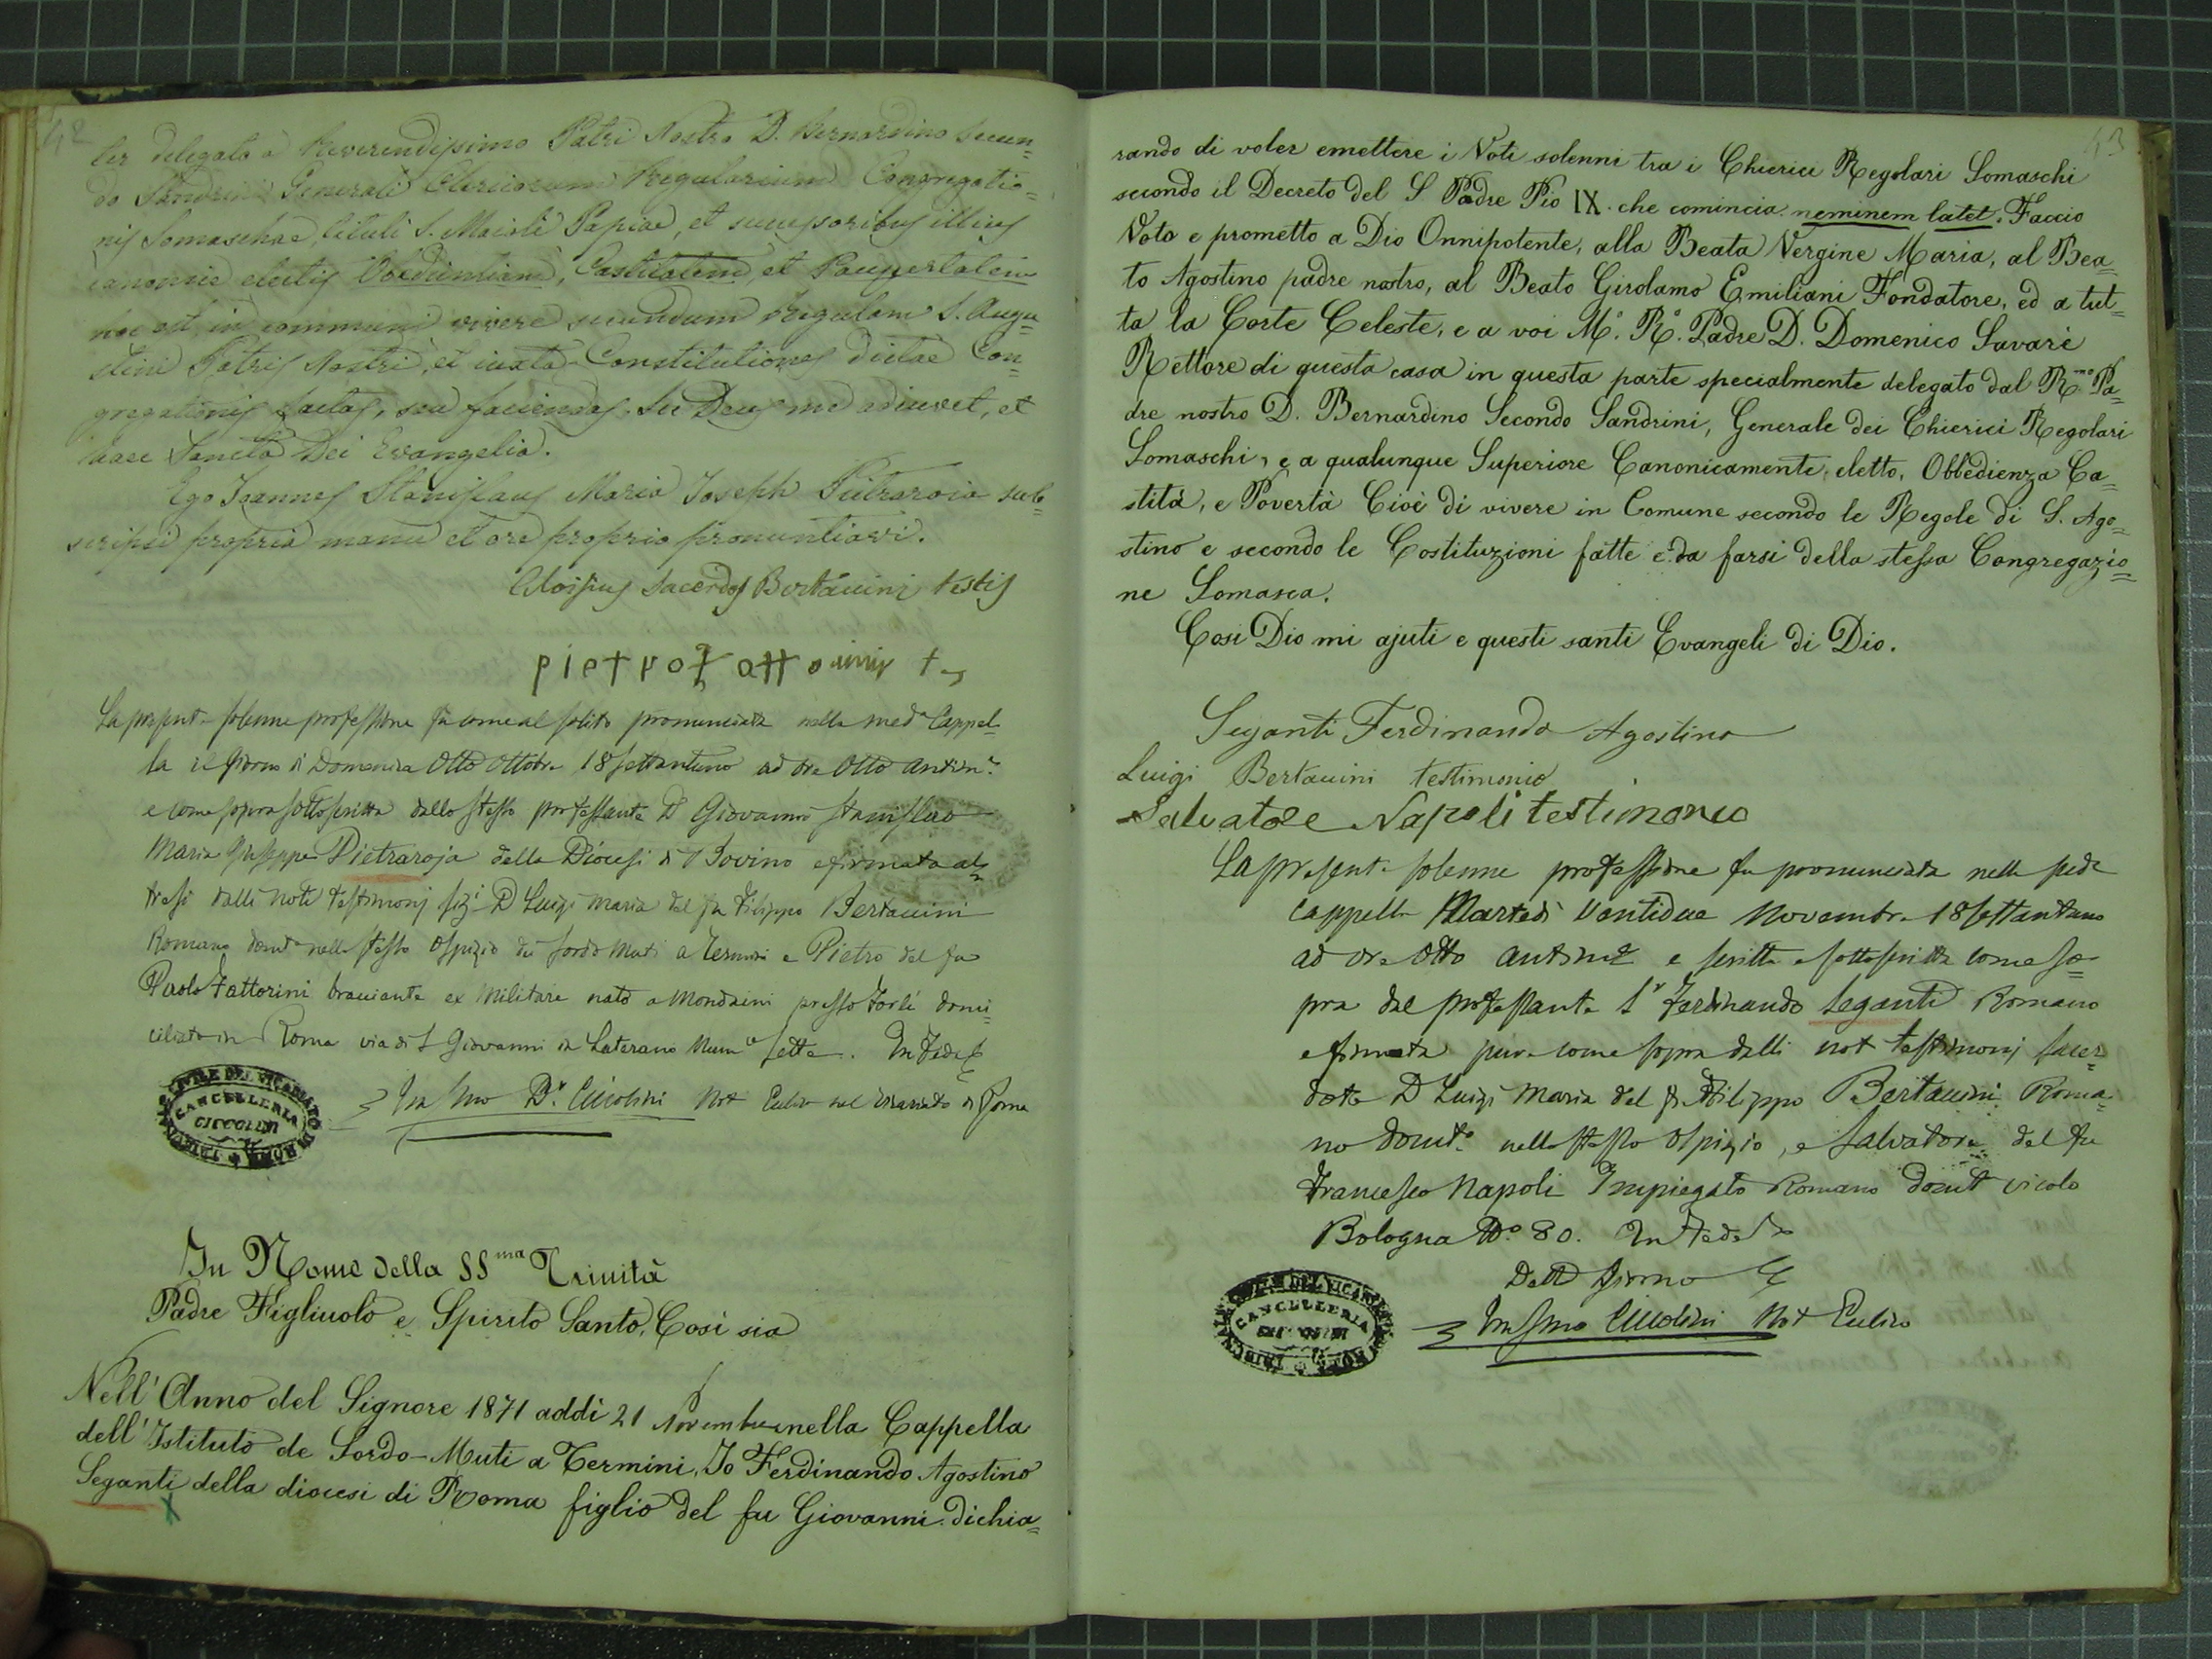 42
ter delegato a Reverendissimo Patri Nostro D. Bernardino Secun=
do Sandrini Generali Clericorum Regularium Congregatio=
nis Somaschae, tituli S. Maioli Papiae, et successoribus illius
canonice electis Obedientiam, Castitatem, et Paupertatem
hoc est, in communi vivere secundum Regulam S. Augu=
stini Patris Nostri, et iuxta Constitutiones dictae Con=
gregationis factas, seu faciendas. Sic Deus me adiuvet, et
haec Sancta Dei Evangelia.
Ego Joannes Stanislaus Maria Joseph Pietraroia sub=
scripsi propria manu et ore proprio pronuntiavi.
Aloisius Sacerdos Bertaccini testis
pietro fattorini
La presente solenne professione fu come al solito pronunciata nella med.a Cappel=
la il giorno di Domenica Otto Ottobre 18settantuno ad ore Otto antim.e
e come sopra sottoscritta dallo stesso professante D Giovanni Stanislao
Maria Giuseppe Pietraroja della Diocesi di Bovino e firmata al=
tresi dalli noti testimonj D Luigi Maria del fu Filippo Bertaccini
Romano dom.to nello stesso Ospizio dei Sordo Muti a Termini e Pietro del fu
Paolo Fattorini bracciante ex Militare nato a Mondaini presso Forlì domi=
ciliato in Roma via di S Giovanni in Laterano Num.o Sette. In Fede
D.r Ciccolini Not del Vicariato di Roma
CANCELLERIA
CICCOLINI
In Nome della SS.ma Trinità
Padre Figliuolo e Spirito Santo, Così sia
Nell' Anno del Signore 1871 addì 21 Novembre nella Cappella
dell' Istituto de Sordo-Muti a Termini, Io Ferdinando Agostino
Seganti della diocesi di Roma figlio del fu Giovanni dichia=
43
rando di voler emettere i Voti solenni tra i Chierici Regolari Somaschi
secondo il Decreto del S Padre Pio IX. che comincia neminem latet. Faccio
Voto e prometto a Dio Onnipotente, alla Beata Vergine Maria, al Bea=
to Agostino padre nostro, al Beato Girolamo Emiliani Fondatore, ed a tut=
ta la Corte Celeste, e a voi M.o R.o Padre D. Domenico Savarè
Rettore di questa casa in questa parte specialmente delegato dal R.mo Pa=
dre nostro D. Bernardino Secondo Sandrini, Generale dei Chierici Regolari
Somaschi, e a qualunque Superiore Canonicamente eletto, Obbedienza Ca=
stità, e Povertà Cioè di vivere in Comune secondo le Regole di S. Ago=
stino e secondo le Costituzioni fatte e da farsi della stessa Congregazio=
ne Somasca.
Così Dio mi ajuti e questi santi Evangeli di Dio.
Seganti Ferdinando Agostino
Luigi Bertaccini testimonio
Salvatore Napoli testimonio
La presente solenne professione fu pronunciata nella sud.a
Cappella Martedì Ventidue Novembre 18settantuno
ad ore Otto antim.e e scritta e sottoscritta come so=
pra dal professante S.r Ferdinando Seganti Romano
e firmata pure come sopra dalli noti testimonj Sacer=
dote D Luigi Maria del fu Filippo Bertaccini Roma=
no dom.to nello stesso Ospizio, e Salvatore del fu
Francesco Napoli Impiegato Romano dom.to vicolo
Bologna N.o 80. In Fede
Detto Giorno
Ciccolini Not
CANCELLERIA